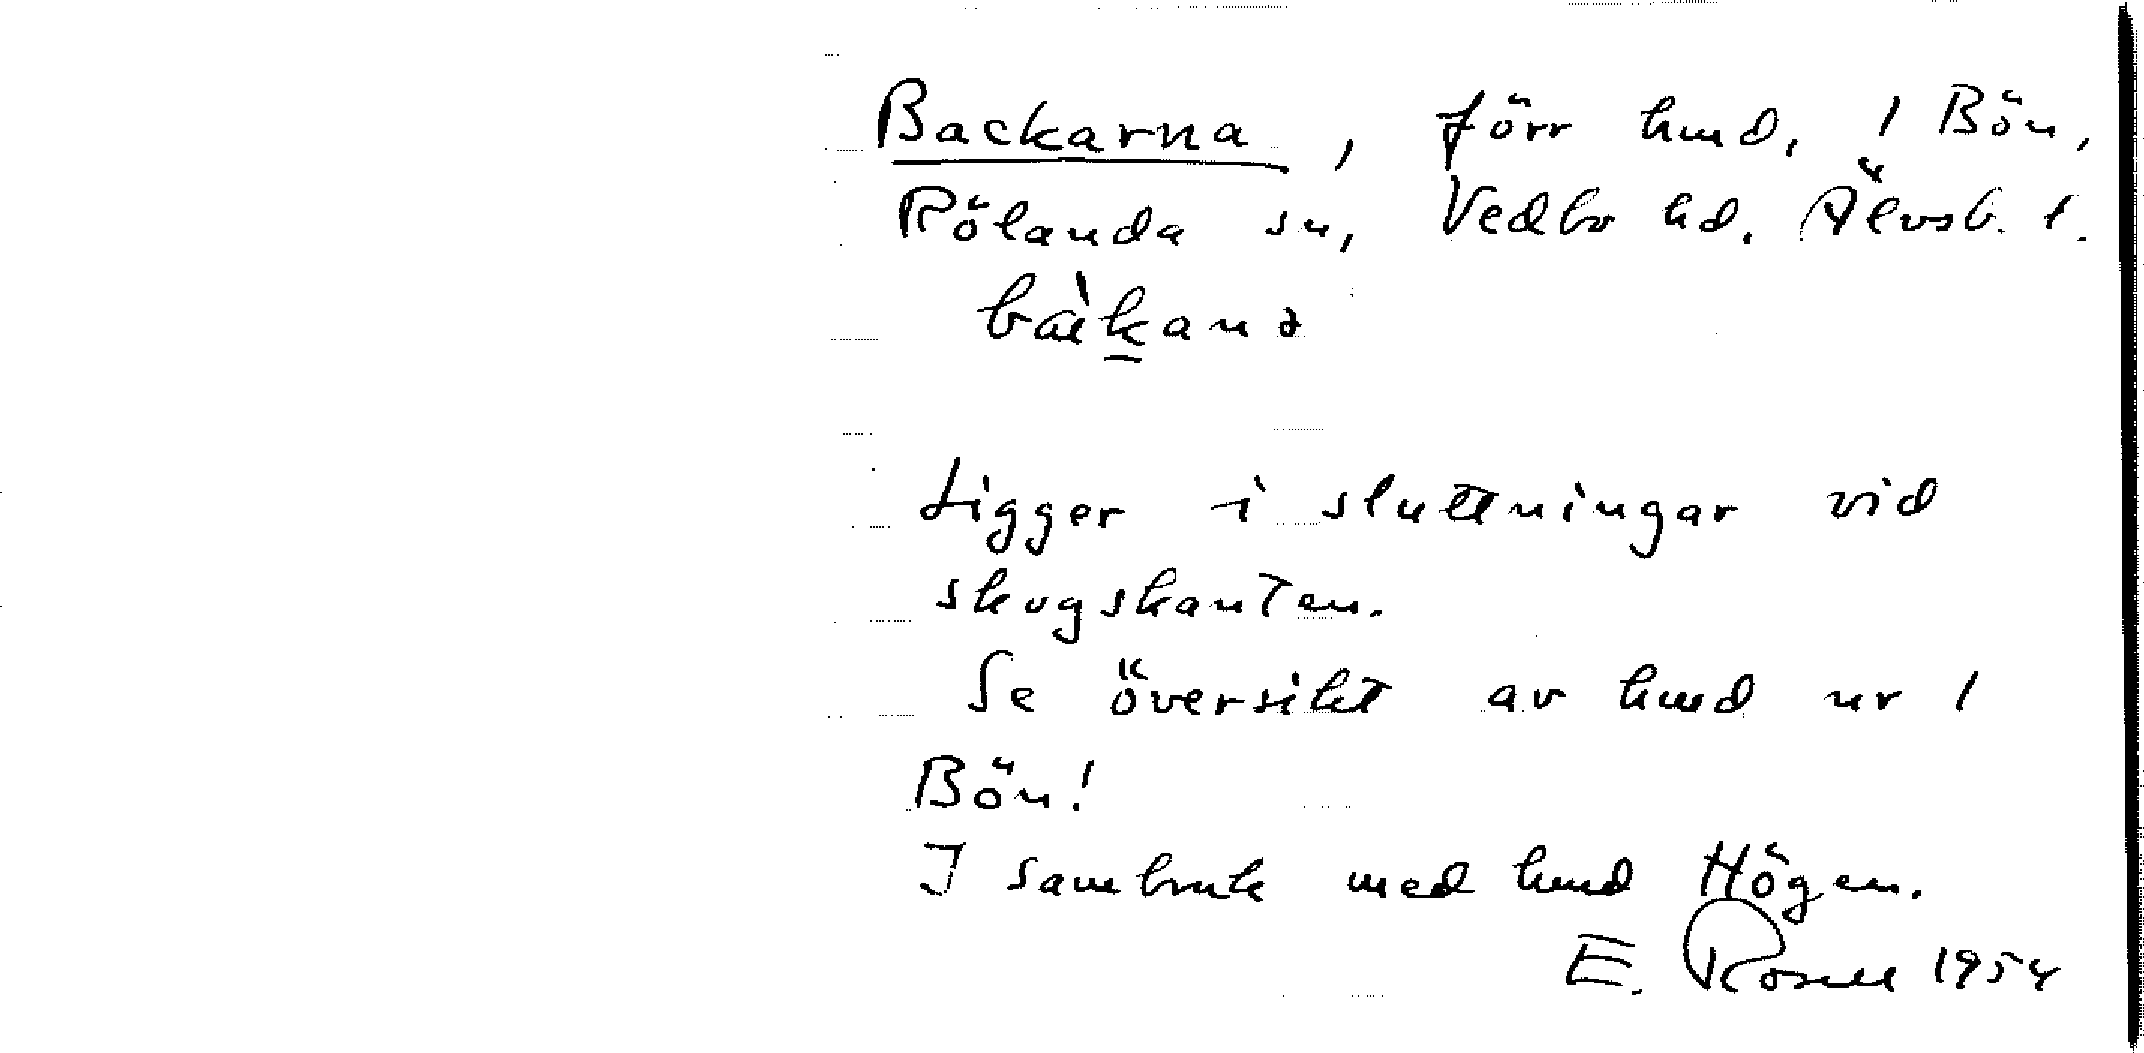 Backarna, förr hmd, 1 Bön,
Rölanda sn, Vedbo hd. Älvsb. l.
bàkana
Ligger i sluttningar vid
skogskanten.
Se översikt av hmd ur 1
Bön!
I sambruk med hmd Högen.
E. Rosell 1954